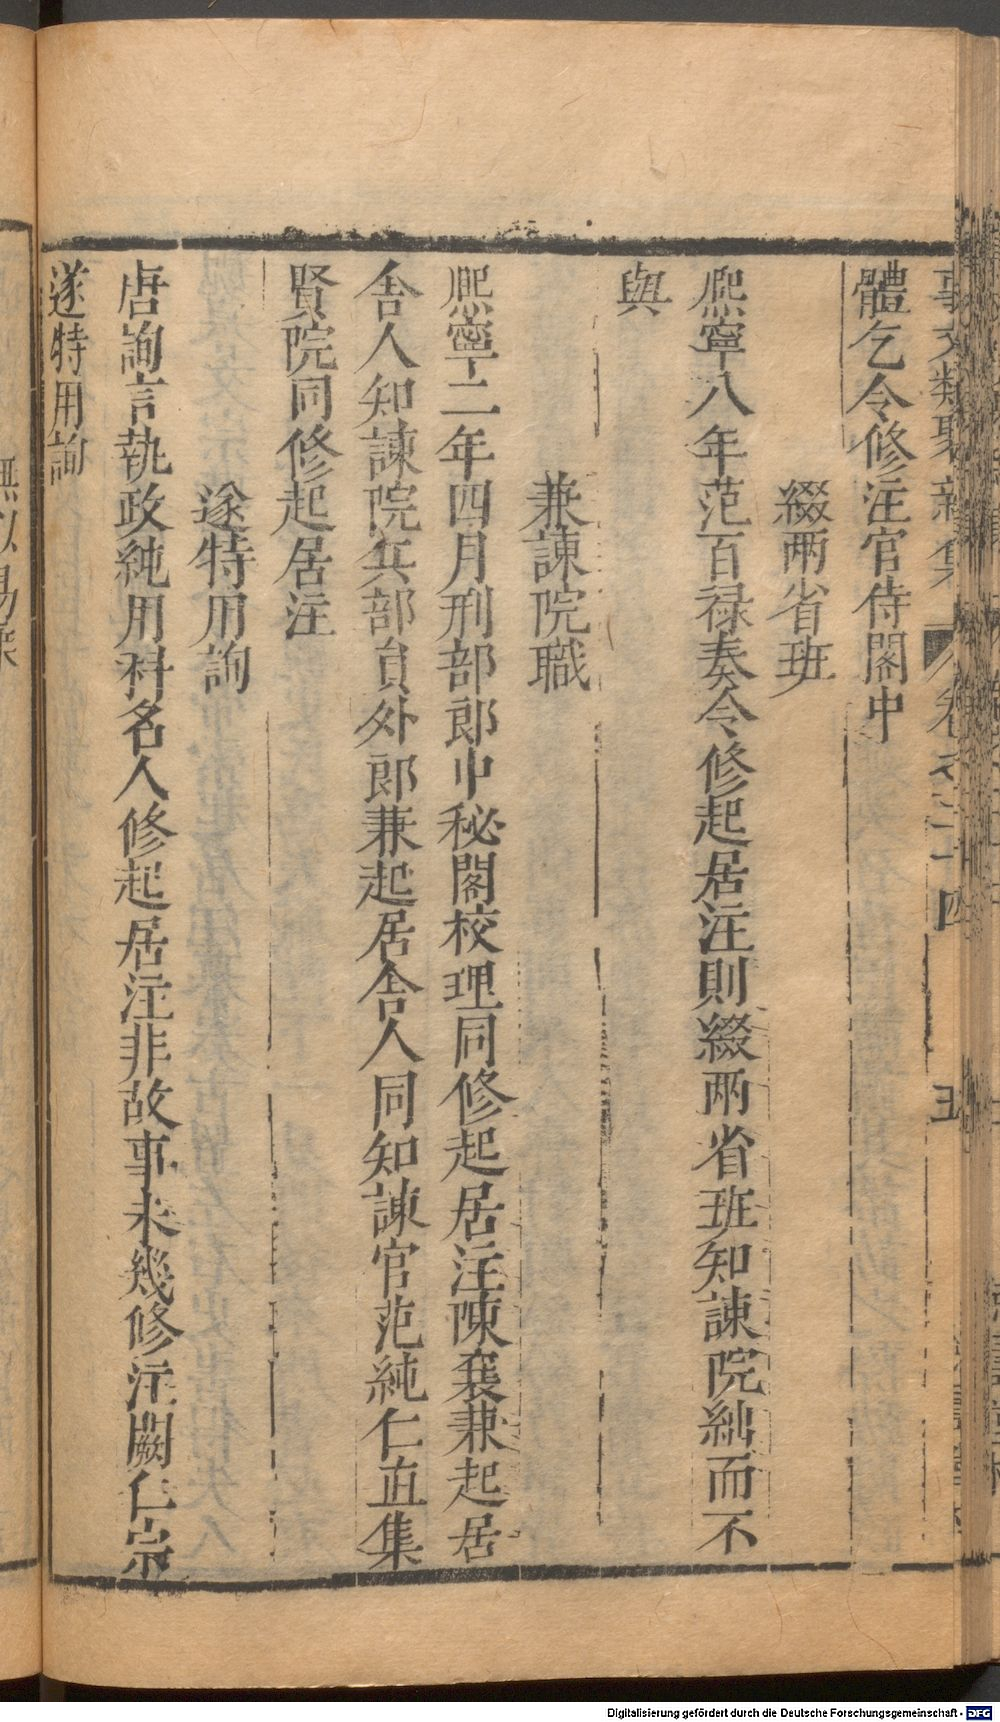 事文類聚新集 卷之三十四 五
體乞令修注官侍閣中
綴两省班
熈寧八年范百禄奏令修起居注則綴两省班知諫院絀而不
與
兼諫院職
熈寧二年四月刑部郎中秘閣校理同修起居注陳襄兼起居
舎人知諫院兵部負外郎兼起居舎人同知諫官范純仁直集
賢院同修起居注
遂特用詢
唐詢言執政純用科名人修起居注非故事未幾修注闕仁宗
遂特用詢
Digitalisierung gefördert durch die Deutsche Forschungsgemeinschaft - DFG